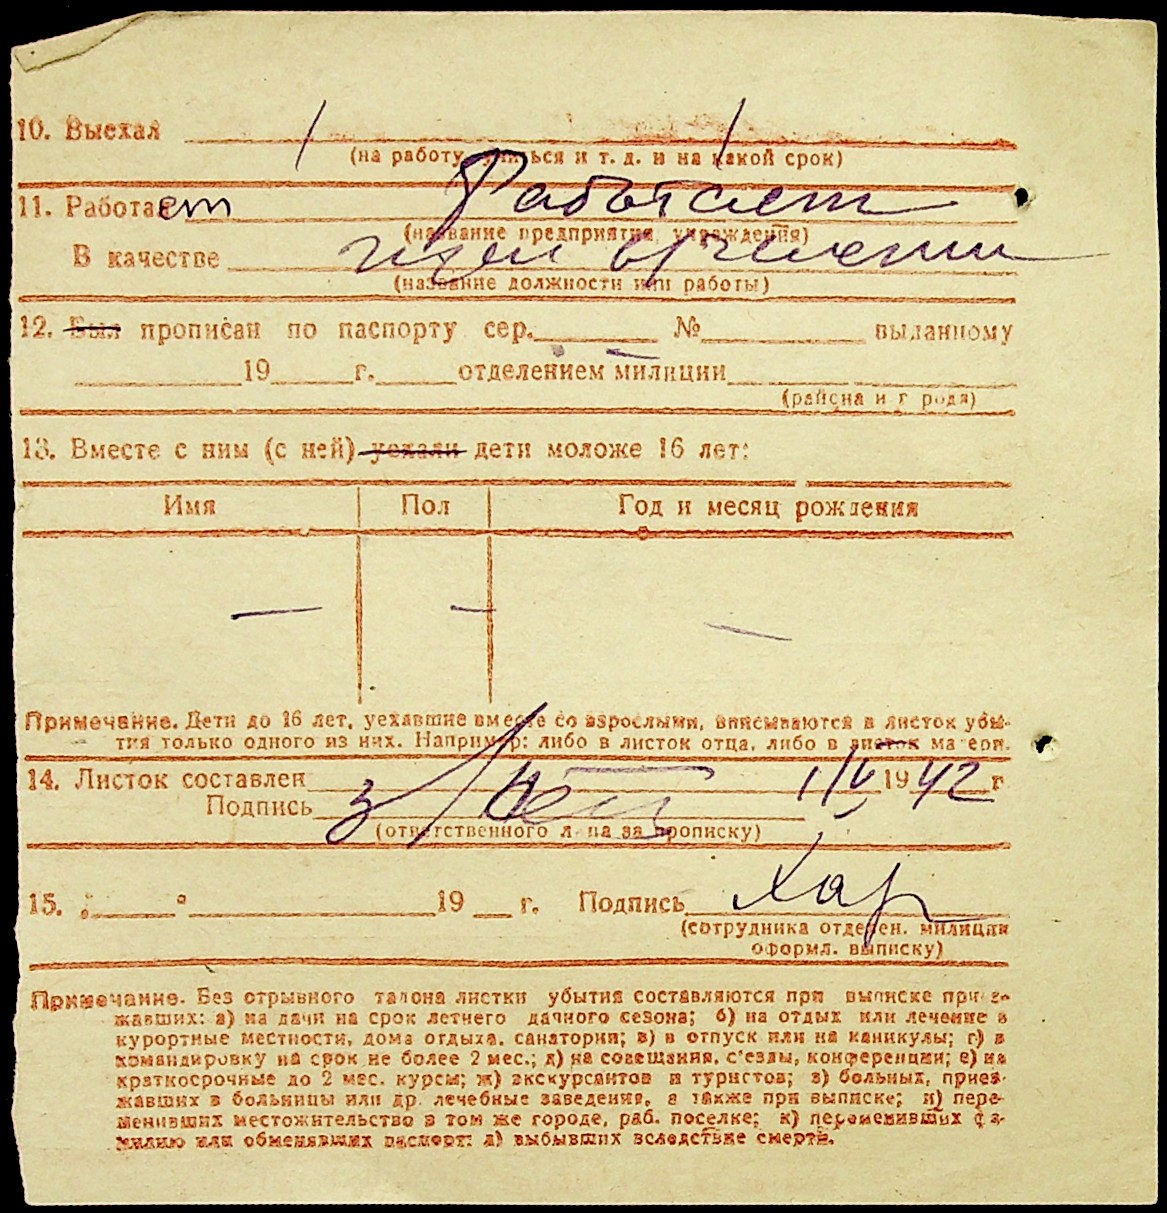 10. Выехал
(на работу, учиться и т. д. и на какой срок)
11. Работает Работает
(название предприятия, учреждения)
В качестве
(название должности или работы)
12. Был прописан по паспорту сер. № выданному
19 г. отделением милиции
(района и города)
13. Вместе с ним (с ней) уехали дети моложе 16 лет:
Имя Пол Год и месяц рождения
— — —
Примечание. Дети до 16 лет, уехавшие вместе со взрослыми, вписываются в листок убы-
тия только одного из них. Например: либо в листок отца, либо в листок матери.
14. Листок составлен 1/V 1942 г.
Подпись
(ответственного лица за прописку)
15. " " 19 г. Подпись Хар
(сотрудника отделен. милиции
оформл. выписку)
Примечание. Без отрывного талона листки убытия составляются при выписке приез-
жавших: а) на дачи на срок летнего дачного сезона; б) на отдых или лечение в
курортные местности, дома отдыха, санатории; в) в отпуск или на каникулы; г) в
командировку на срок не более 2 мес.; д) на совещания, с'езды, конференции; е) на
краткосрочные до 2 мес. курсы; ж) экскурсантов и туристов; з) больных, приез-
жавших в больницы или др. лечебные заведения, а также при выписке; и) пере-
менивших местожительство в том же городе, раб. поселке; к) переменивших фа-
милию или обменявших паспорт; л) выбывших вследствие смерти.